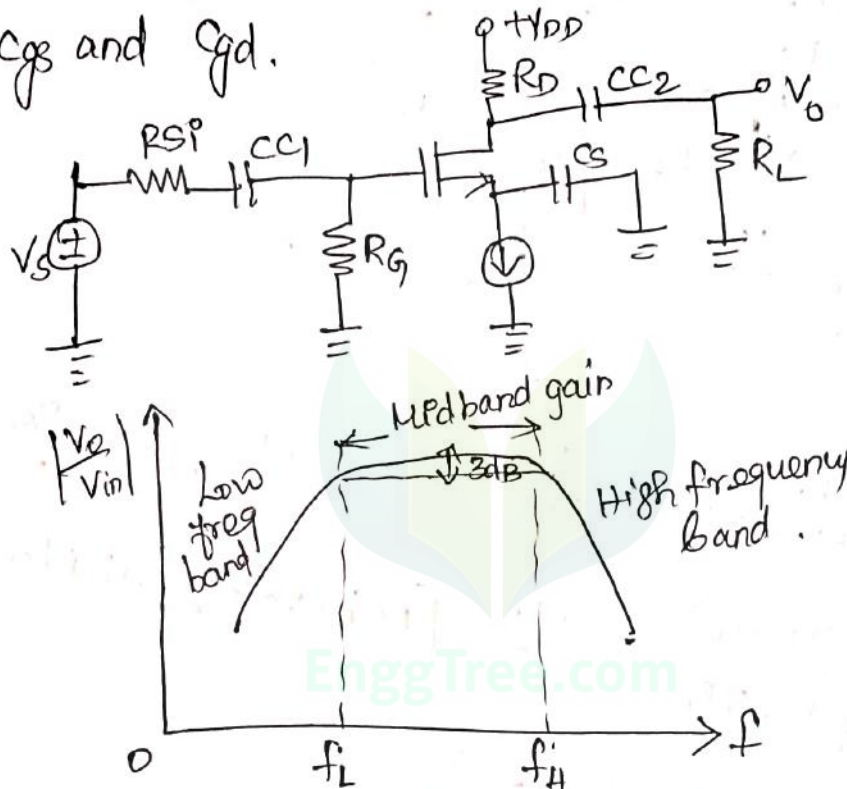 Cgs and Cgd.
+VDD
RD
CC2
Vo
RSi
CC1
CS
RL
VS
RG
Midband gain
|Vo/Vin|
3dB
Low
freq
band
High frequency
band.
EnggTree.com
0
fL
fH
f